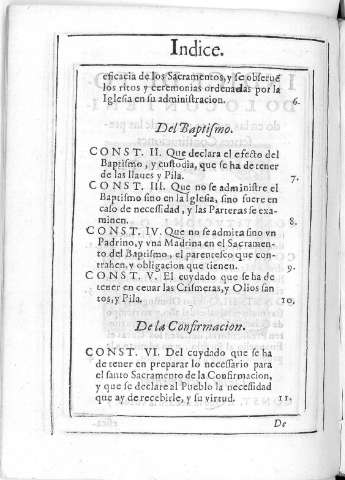 Indice.
eficacia de los Sacramentos, y se obseruē
los ritos y ceremonias ordenadas por la
Iglesia en su administracion. 6.
Del Baptismo.
CONST. II. Que declara el efecto del
Baptismo, y custodia, que se ha de tener
de las llaues y Pila. 7.
CONST. III. Que no se administre el
Baptismo sino en la Iglesia, sino fuere en
caso de necessidad, y las Parteras se exa-
minen. 8.
CONST. IV. Que no se admita sino vn
Padrino, y vna Madrina en el Sacramen-
to del Baptismo, el parentesco que con-
trahen, y obligacion que tienen. 9.
CONST. V. El cuydado que se ha de
tener en ceuar las Crismeras, y Olios san
tos, y Pila. 10.
De la Confirmacion.
CONST. VI. Del cuydado que se ha
de tener en preparar lo necessario para
el santo Sacramento de la Confirmacion,
y que se declare al Pueblo la necessidad
que ay de recebirle, y su virtud. 11.
De